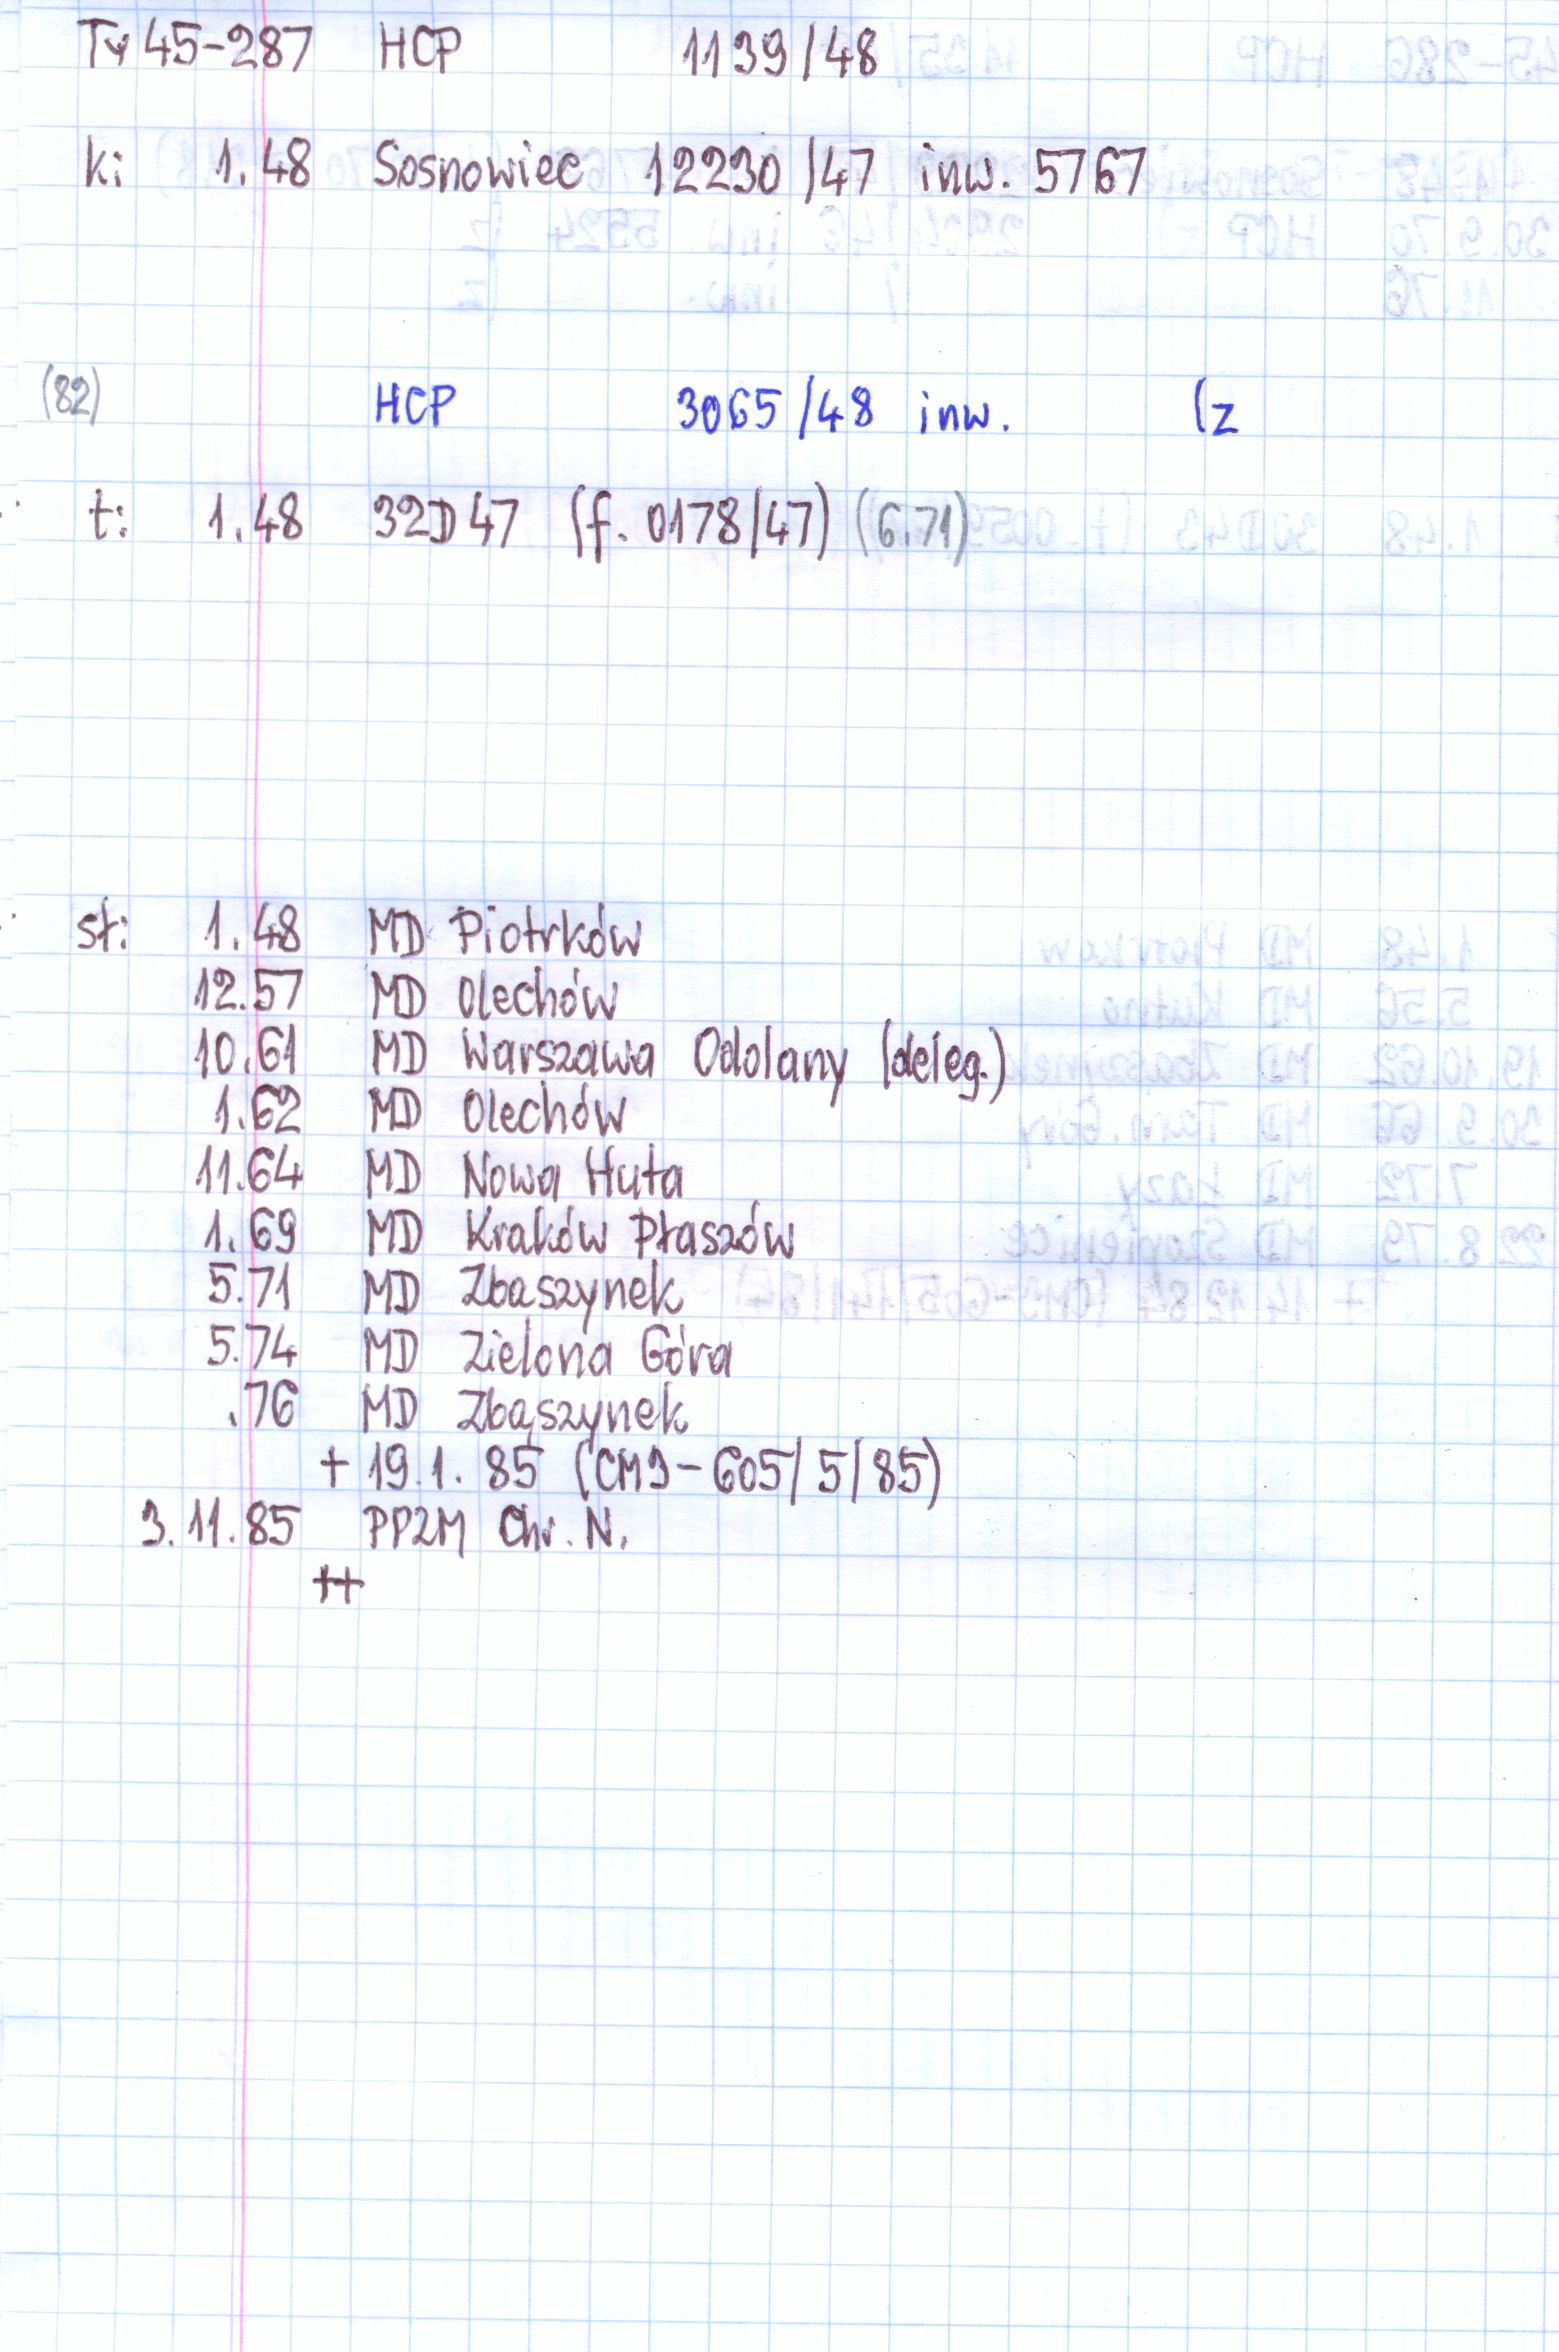 Ty 45-287 HCP 1139/48
k: 1.48 Sosnowiec 12230/47 inw. 5767
(82) HCP 3065/48 inw. (z
t: 1.48 32D47 (f. 0178/47) (6.71)
st: 1.48 MD Piotrków
12.57 MD Olechów
10.61 MD Warszawa Odolany (deleg.)
1.62 MD Olechów
11.64 MD Nowa Huta
1.69 MD Kraków Płaszów
5.71 MD Zbąszynek
5.74 MD Zielona Góra
.76 MD Zbąszynek
+ 19.1.85 (CMD-605/5/85)
3.11.85 PPZM Chr. N.
++